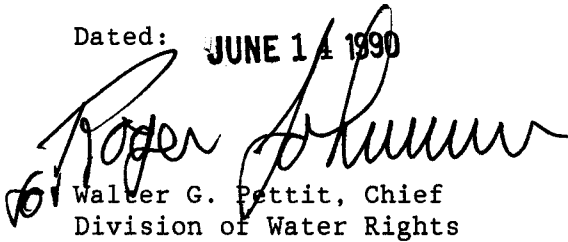 Dated: JUNE 14 1990
Roger Johnson
for Walter G. Pettit, Chief
Division of Water Rights